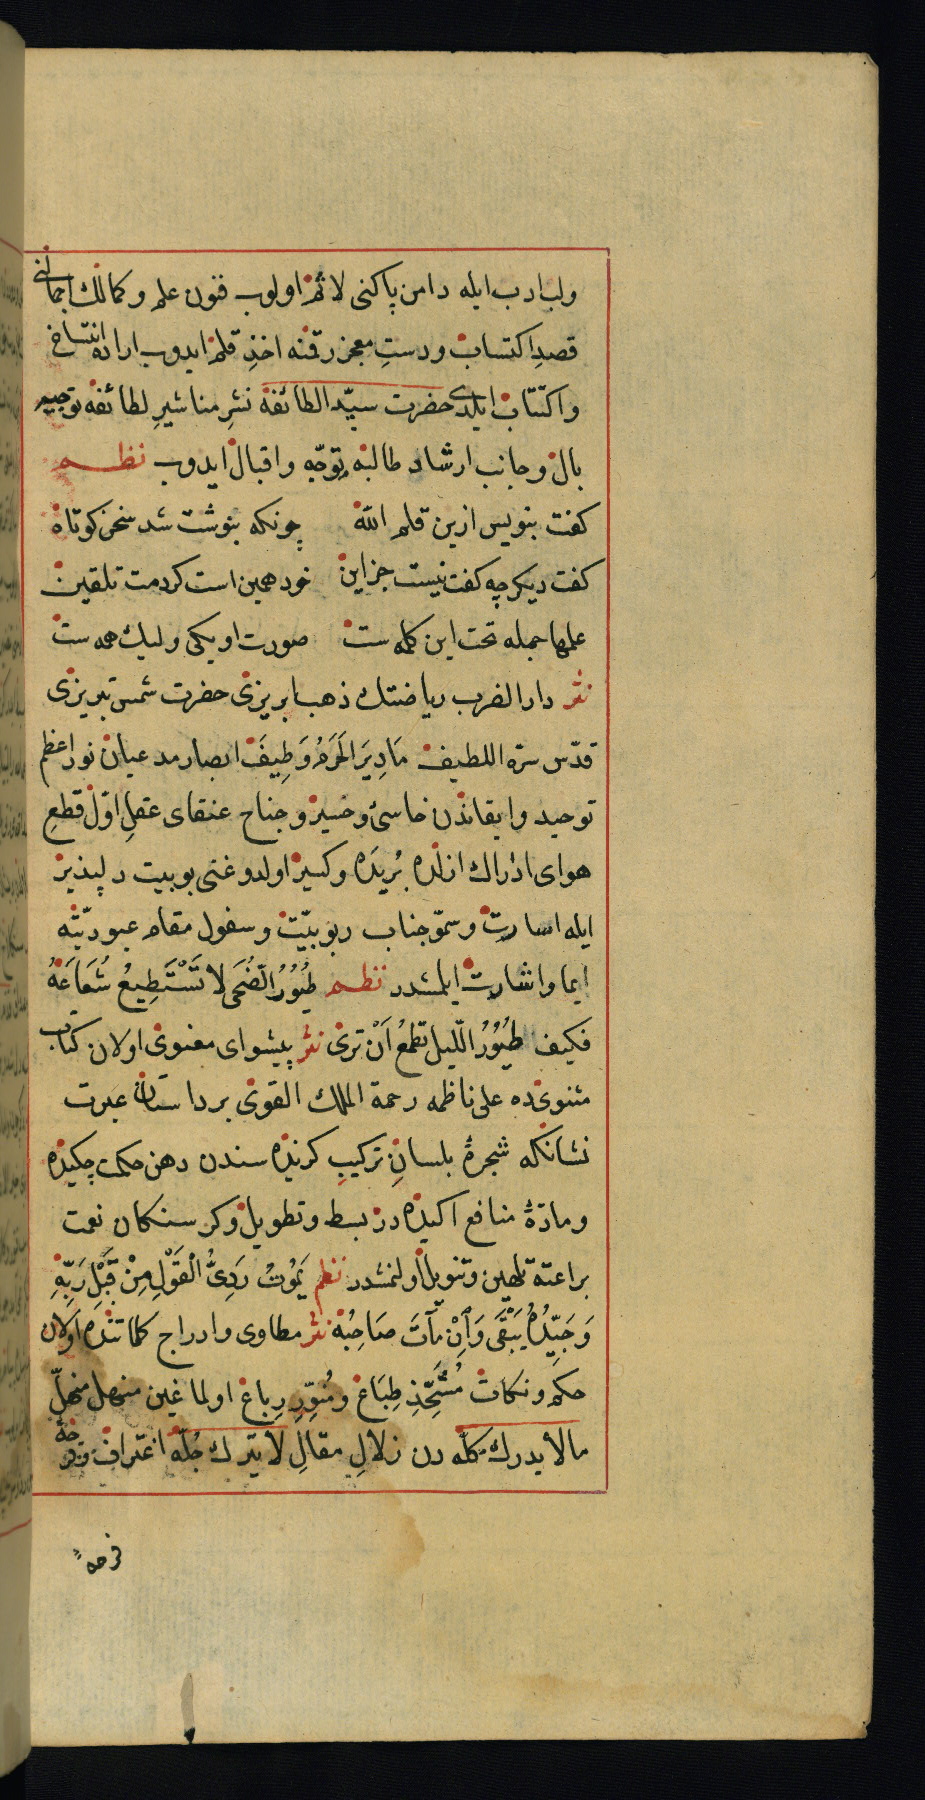 ولب ادب ايله دامن پاكنى لاثم اولوب فنون علم وكمالك اجمالنى
قصدِ اكتساب ودستِ معجز رقمنه اخذِ قلم ايدوب اراده انتساخ
واكتتاب ايلدى حضرت سيّد الطائفه نشرِ مناشيرِ لطائفه توجيه
بال وجانب ارشاد طالبه توجّه واقبال ايدوب نظم
كفت بنويس ازين قلم الله چونكه بنوشت شد سخن كوتاه
كفت ديكر چه كفت نيست جز اين خود همين است كردمت تلقين
علمها جمله تحت اين كلمه ست صورت او يكى وليك همه ست
نثر دار الضرب رياضتك ذهب ابريزى حضرت شمس تبريزى
قدّس سرّه اللطيف مَادِيرَ الحَرَمُ وَطِيفَ ابصار مدعيان نور اعظم
توحيد وايقاندن خاسئ وحسير وجناح عنقاى عقلِ اوّل قطعِ
هواى ادراك ازلده بُريَده وكسير اولدوغنى بو بيت دلپذير
ايله اسارت وسموّ جناب ربوبيّت وسفول مقام عبوديّته
ايما واشارت ايلمشدر نظم طُيُورُ الضُّحَى لا تَسْتَطِيعُ شُعَاعَهُ
فكيف طُيُورُ اللّيل تطمعُ اَنْ ترى نثر پيشواى معنوى اولان كتاب
مثنوىده على ناظمه رحمة الملك القوى بر داستان عبرت
نشانكه شجرهٔ بلسانِ تركيبِ كزيده سندن دهن حكمت چكيده
ومادّهٔ منافع اكيده در بسط وتطويل وكرسنكان نعمت
براعته تلهين وتنويل اولنمشدر نظم يَمُوتُ رَدِىُّ الْقَوْلِ مِنْ قَبْلِ رَبِّهِ
وَجَيِّدُهُ يَبْقَى وَاِنْ مَاتَ صَاحِبُهُ نثر مطاوى وادراج كلماتنده اولان
حكم ونكات مُشَحِّذِ طِبَاغ ومُنوِّرِ رِباغ اولماغين منهل منهلّ
مالا يدرك كلّه دن زلالِ مقالِ لا يترك جُلّه اغتراف
فرحهً